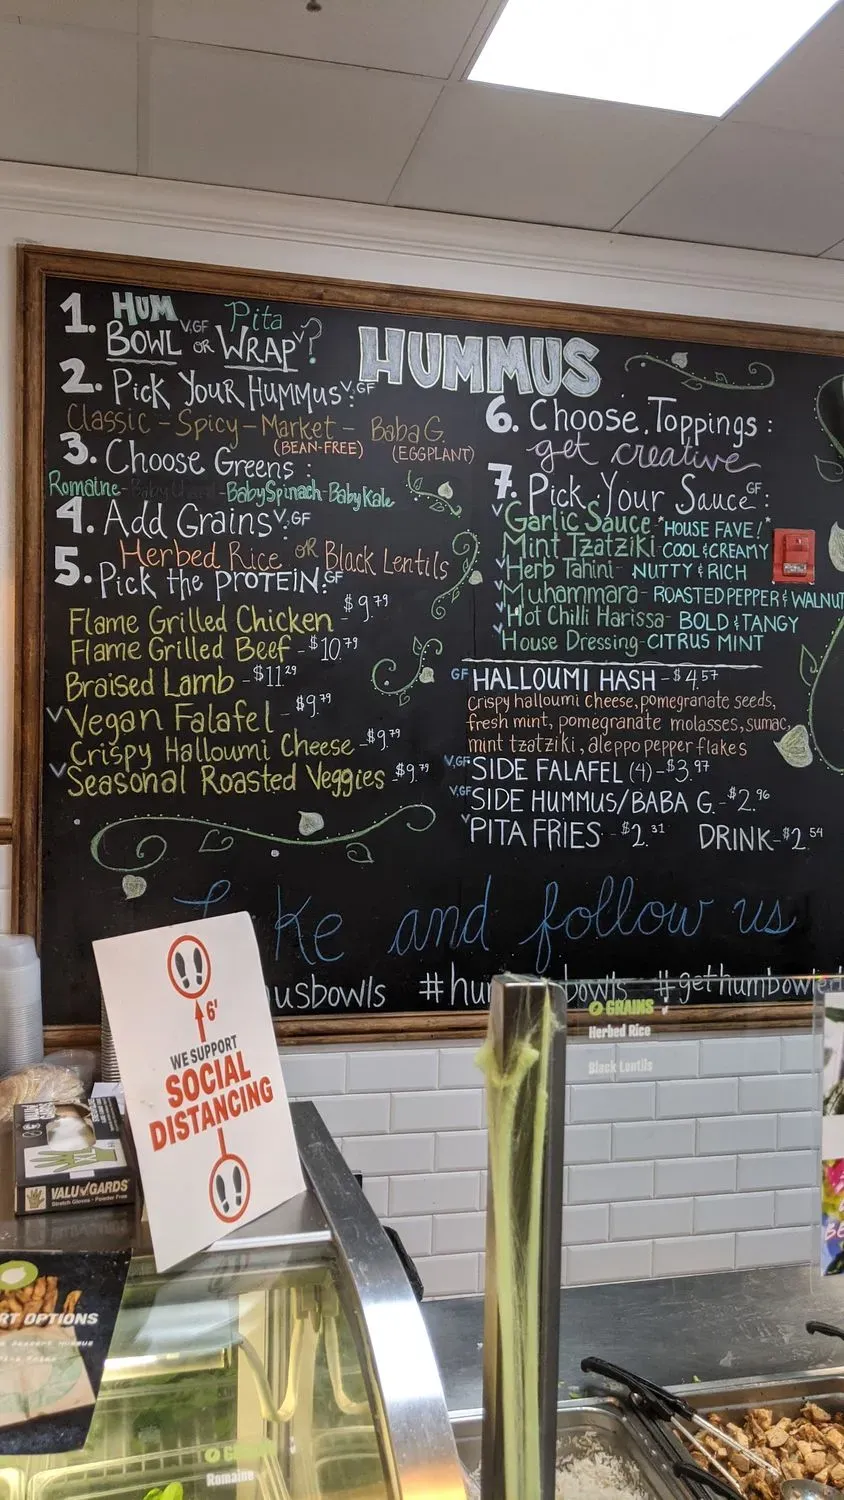 1. HUM BOWL V,GF OR Pita WRAP V?
HUMMUS
2. Pick Your Hummus V,GF:
Classic - Spicy - Market - Baba G.
(BEAN-FREE) (EGGPLANT)
3. Choose Greens:
Romaine - Baby Chard - Baby Spinach - Baby Kale
4. Add Grains V,GF:
Herbed Rice OR Black Lentils
5. Pick the PROTEIN: GF
Flame Grilled Chicken - $9.79
Flame Grilled Beef - $10.79
Braised Lamb - $11.29
V Vegan Falafel - $9.79
Crispy Halloumi Cheese - $9.79
V Seasonal Roasted Veggies - $9.79
6. Choose Toppings:
get creative
7. Pick Your Sauce GF:
V Garlic Sauce *HOUSE FAVE!*
Mint Tzatziki - COOL & CREAMY
V Herb Tahini - NUTTY & RICH
V Muhammara - ROASTED PEPPER & WALNUT
V Hot Chilli Harissa - BOLD & TANGY
V House Dressing - CITRUS MINT
GF HALLOUMI HASH - $4.57
crispy halloumi cheese, pomegranate seeds,
fresh mint, pomegranate molasses, sumac,
mint tzatziki, aleppo pepper flakes
V,GF SIDE FALAFEL (4) - $3.97
V,GF SIDE HUMMUS/BABA G. - $2.96
V PITA FRIES - $2.31 DRINK - $2.54
and follow us
#gethumbowled
6'
WE SUPPORT
SOCIAL
DISTANCING
GRAINS
Herbed Rice
Black Lentils
XL
VALUGARDS
Stretch Gloves - Powder Free
OPTIONS
Romaine